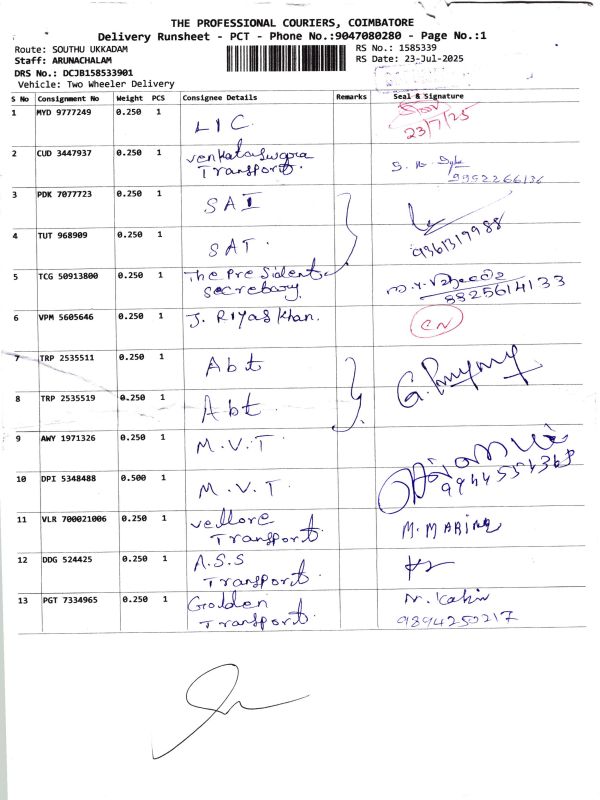 THE PROFESSIONAL COURIERS, COIMBATORE
Delivery Runsheet - PCT - Phone No.:9047080280 - Page No.:1
Route: SOUTHU UKKADAM
RS No.: 1585339
Staff: ARUNACHALAM
RS Date: 23-Jul-2025
DRS No.: DCJB158533901
Vehicle: Two Wheeler Delivery
S No Consignment No Weight PCS Consignee Details Remarks Seal & Signature
1 MYD 9777249 0.250 1 LIC
23/7/25
2 CUD 3447937 0.250 1 Venkataswara
Transport.
9952266136
3 PDK 7077723 0.250 1 SAI
4 TUT 968909 0.250 1 SAI. 9361319988
5 TCG 50913800 0.250 1 The President
Secretary. 8825614133
6 VPM 5605646 0.250 1 J. Riyas Khan. CN
7 TRP 2535511 0.250 1 Abt
8 TRP 2535519 0.250 1 Abt.
9 AWY 1971326 0.250 1 M.V.T.
10 DPI 5348488 0.500 1 M.V.T.
11 VLR 700021006 0.250 1 Vellore
Transport.
12 DDG 524425 0.250 1 A.S.S
Transport.
13 PGT 7334965 0.250 1 Golden
Transport. 9894250217